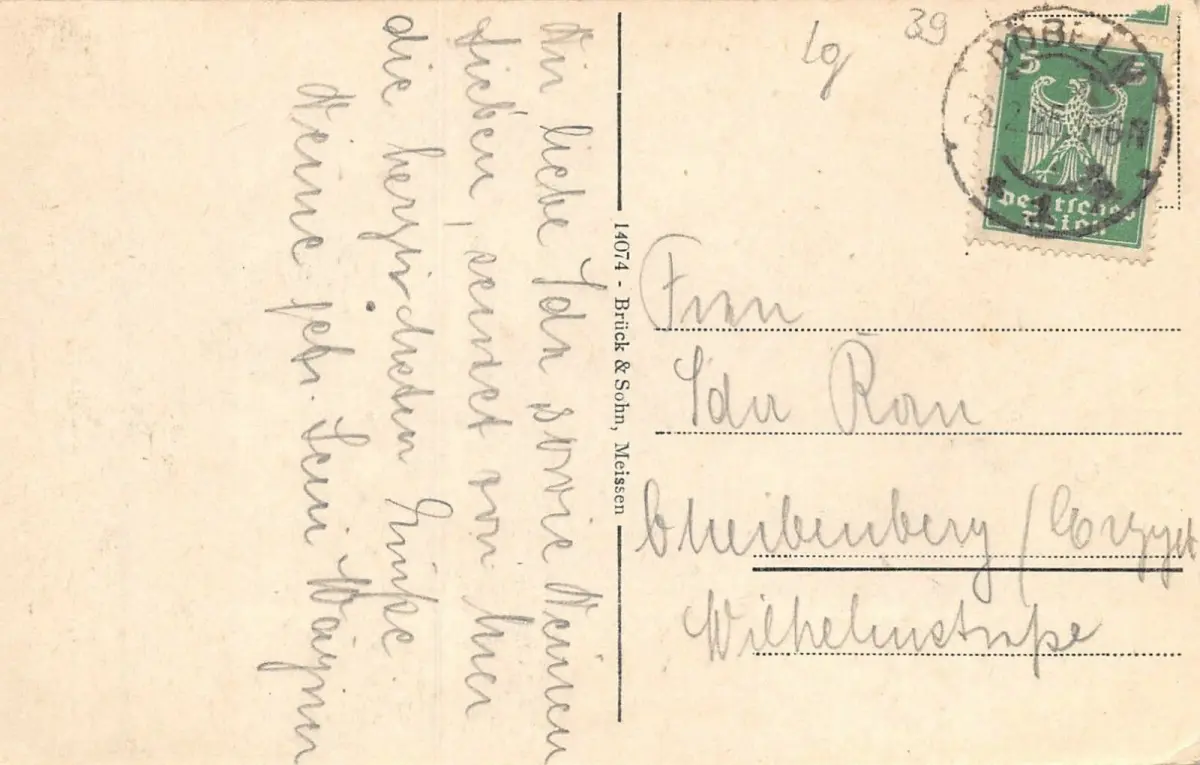 Dir liebe Ida sowie Deinen
Lieben, sendet von hier
die herzlichsten Grüße
Deine
Wagner
14074 - Brück & Sohn, Meissen
lg
39
DÖBELN
5 5
Deutsches
Reich
1
Frau
Ida Rau
Scheibenberg / Erzgeb
Wilhelmstraße